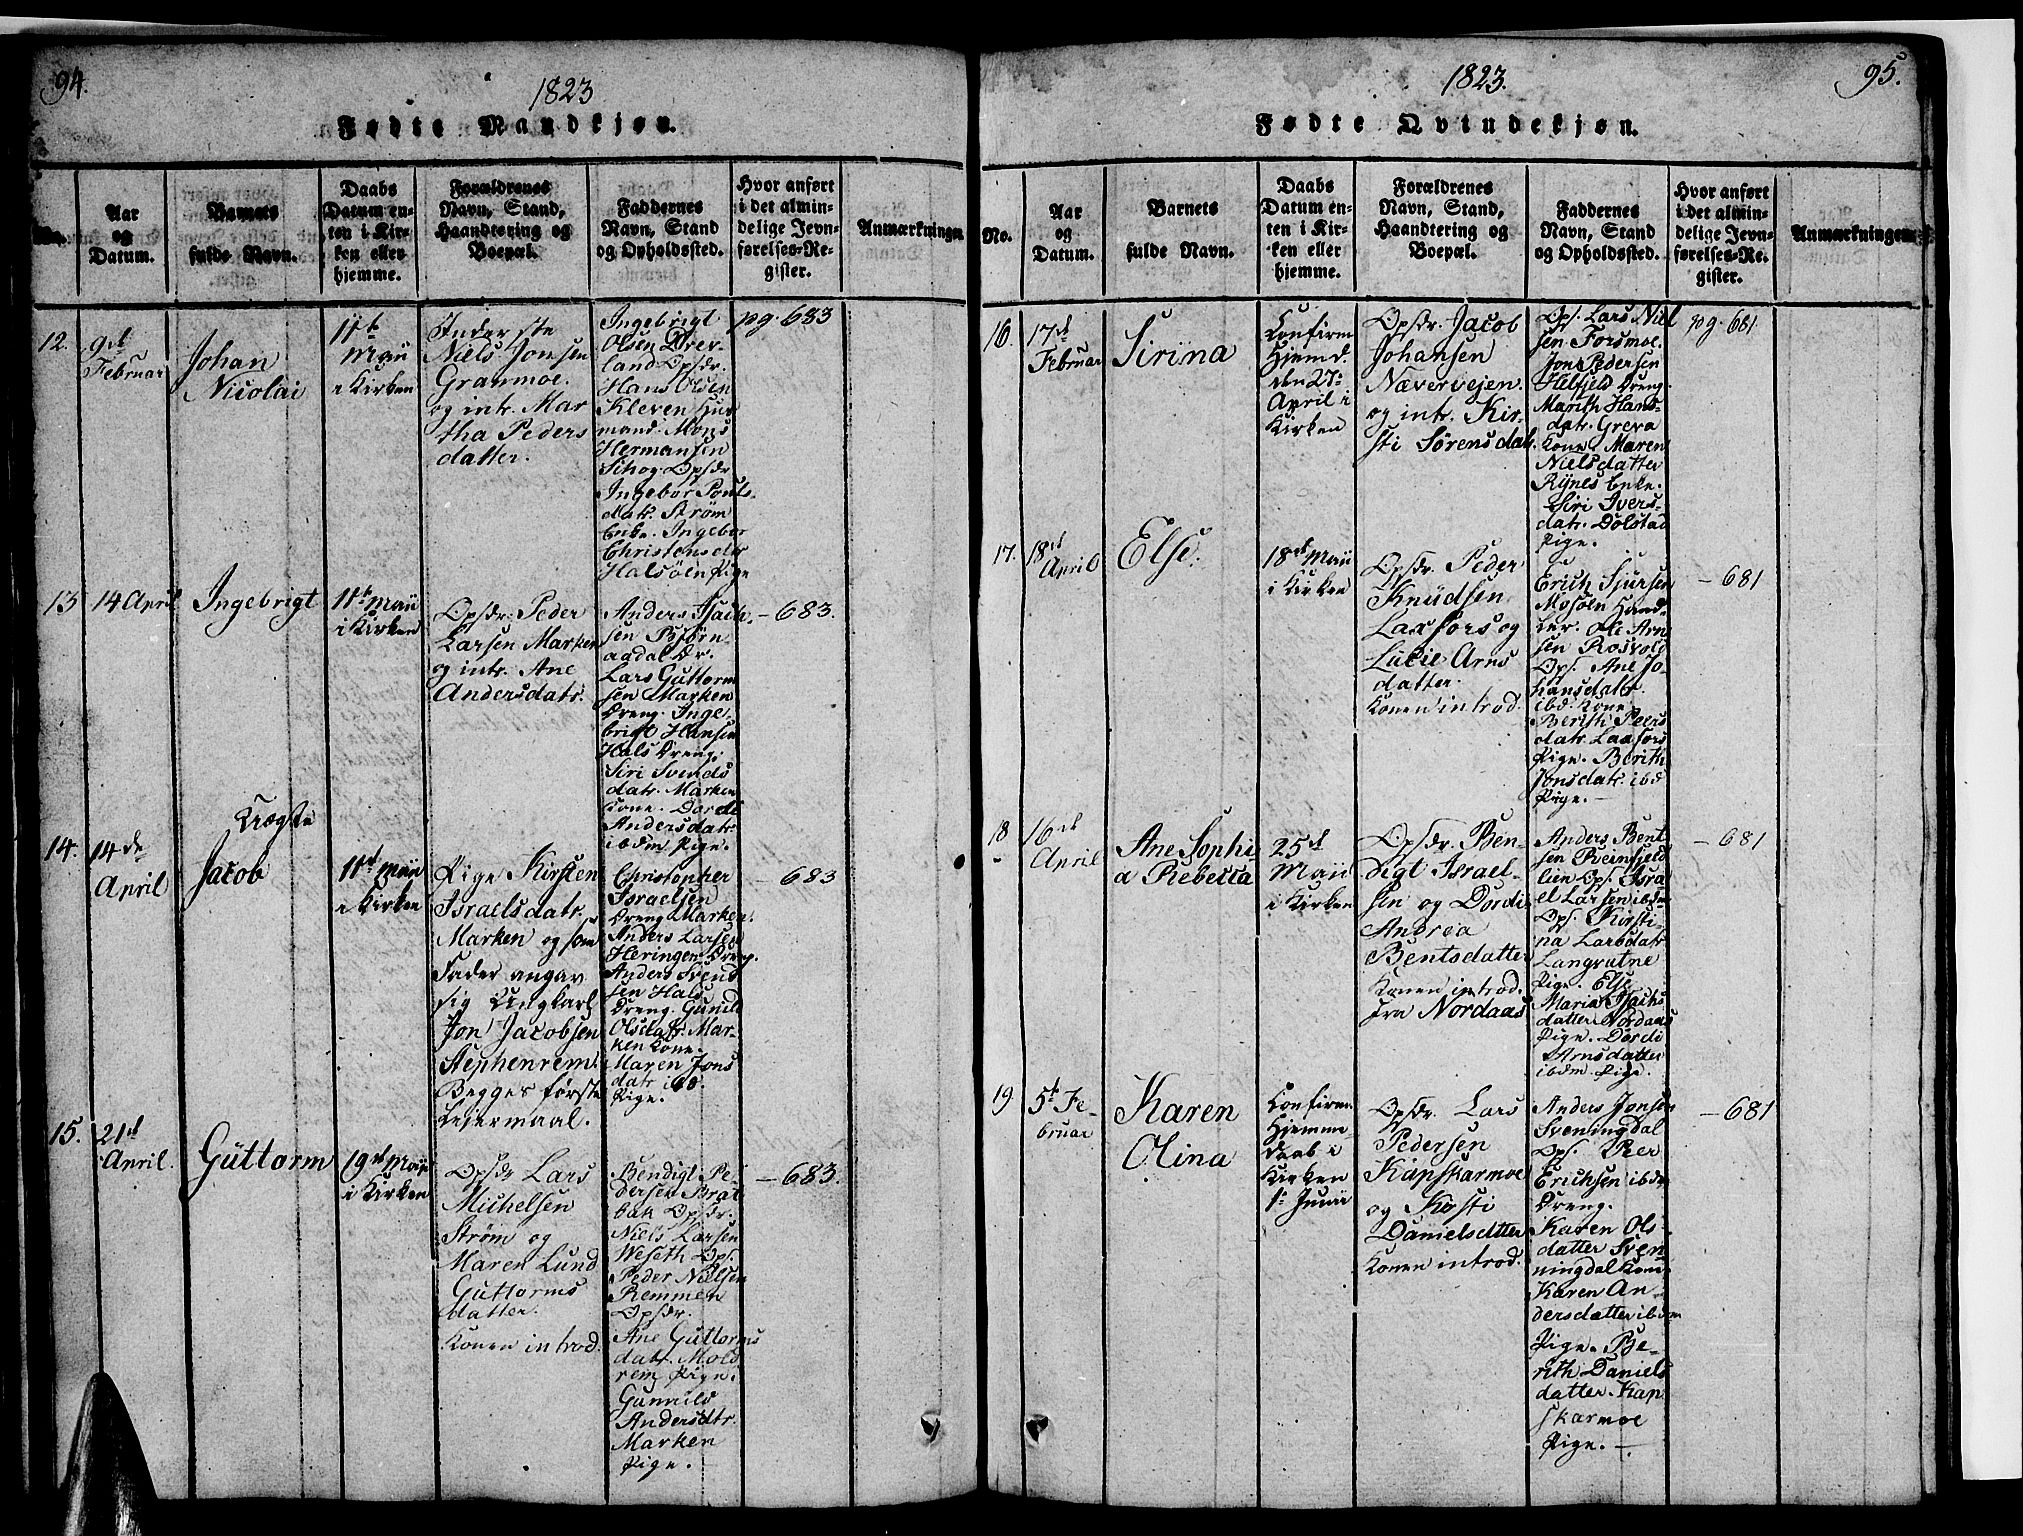 94.
1823
Fødte Mandkjøn.
No.
Aar
og
Datum.
Barnets
fulde Navn.
Daabs
Datum en-
ten i Kir-
ken eller
hjemme.
Forældrenes
Navn, Stand,
Haandtering og
Boepæl.
Faddernes
Navn, Stand
og Opholdssted.
Hvor anført
i det almin-
delige Jevn-
førelses-Re-
gister.
Anmærkninger
12.
9de
Februar
Johan
Nicolai
11te
Maii
i Kirken
Inderste
Niels Jonsen
Granmoe.
og intr. Mar
tha Peders
datter.
Ingebrigt
Olsen Drev-
land Opsdr.
Hans Olsen
Kleven Huus
mand. Mons
Hermansen
Opsdr.
Ingebor Pouls-
datr. Strøm
Enke. Ingebor
Christensdtr
Halsöen Pige
pg. 683
13
14 April
Ingebrigt
11te Maii
i Kirken
Opsdr. Peder
Larsen Marken
og intr. Ane
Andersdatr.
Anders Isach-
sen Bjørn
aadal Dr.
Lars Guttorm
sen Marken
Dreng. Inge-
brigt Hansen
Hals Dreng.
Siri Svends
datr. Marken
Kone. Dordi
Andersdatr.
ibdm Pige.
- 683.
14.
14de
April
Uægte
Jacob
11te Maii
i Kirken
Pige Kirsten
Israelsdatr.
Marken og som
Fader angav
sig Ungkarl
Jon Jacobsen
Stephenrem.
Begges første
Leiermaal.
Christopher
Israelsen
Dreng Marken.
Anders Larsen
Heringen Dreng.
Anders Svend
sen Hals
Dreng. Gunild
Olsdatr. Mar-
ken Kone.
Maren Jons
datr ibd.
Pige.
- 683
15.
21de
April.
Guttorm
19de Maii
i Kirken
Opsdr Lars
Michelsen
Strøm og
Maren Lund
Guttorms
datter.
Konen introd.
Bendigt Pe-
dersen Brat
bak Opsdr.
Niels Larsen
Weseth Ops.
Peder Nielsen
Remmen
Opsdr.
Ane Guttorms
datr. Mold
rem Pige.
Gunnild
Andersdtr.
Marken
Pige.
- 683.
95.
1823.
Fødte Qvindekjøn.
No.
Aar
og
Datum.
Barnets
fulde Navn.
Daabs
Datum en-
ten i Kir-
ken eller
hjemme.
Forældrenes
Navn, Stand,
Haandtering og
Boepæl.
Faddernes
Navn, Stand
og Opholdssted.
Hvor anført
i det almin-
delige Jevn-
førelses-Re-
gister.
Anmærkninger
16.
17de
Februar
Sirina
Confirm
Hjemd.
den 27de
April i
Kirken
Opsdr. Jacob
Johansen
Nævervejen
og intr. Kir-
sti Sørensdatr.
Ops. Lars Niel
sen Forsmoe.
Jon Pedersen
Helfjeld Dreng.
Marith Hans-
datr. Greva
Kone Maren
Nielsdatter
Rynes Enke.
Siri Ivers-
datr. Dolstad
Pige.
pg. 681
17.
18de
April
Else.
18de Maii
i Kirken
Opsdr. Peder
Knudsen
Laxfors og
Lucie Arns
datter.
Konen introd.
Erich Sjursen
Mosöen Hand-
ler. Ole Arn
sen Rosvold
Ops. Ane Jo-
hansdatr.
ibd. Kone.
Berith Peers
datr. Laxfors
Pige. Berith
Jonsdatr. ibd
Pige.-
- 681
18
16de
April
Ane Sophi
a Rebecca
25de
Maii
i Kirken
Opsdr. Ben-
digt Israel-
sen og Dordi
Andrea
Bentsdatter
Konen introd.
fra Nordaas
Anders Bent
sen Reinfjeld
lien Ops. Isra
el Larsen ibdm
Ops. Kirsti-
na Larsdatr.
Langvatne
Pige. Else
Maria Isachs
datter Nordaas
Pige. Dordi
Arnsdatter
ibdm. Pige.
- 681
19
5te Fe-
bruar
Karen
Olina
Confirm.
Hjemme-
daab i
Kirken
1ste Junii
Opsdr. Lars
Pedersen
Kapskarmoe
og Kisti
Danielsdtter
Konen introd.
Anders Jonsen
Sveningdal
Ops. Peer
Erichsen ibdm
Dreng.
Karen Ols-
datter Sven-
ningdal Kone
Karen An-
dersdatter ibdm
Pige. Be-
rith Daniels
datter. Kap-
skarmoe
Pige.-
- 681